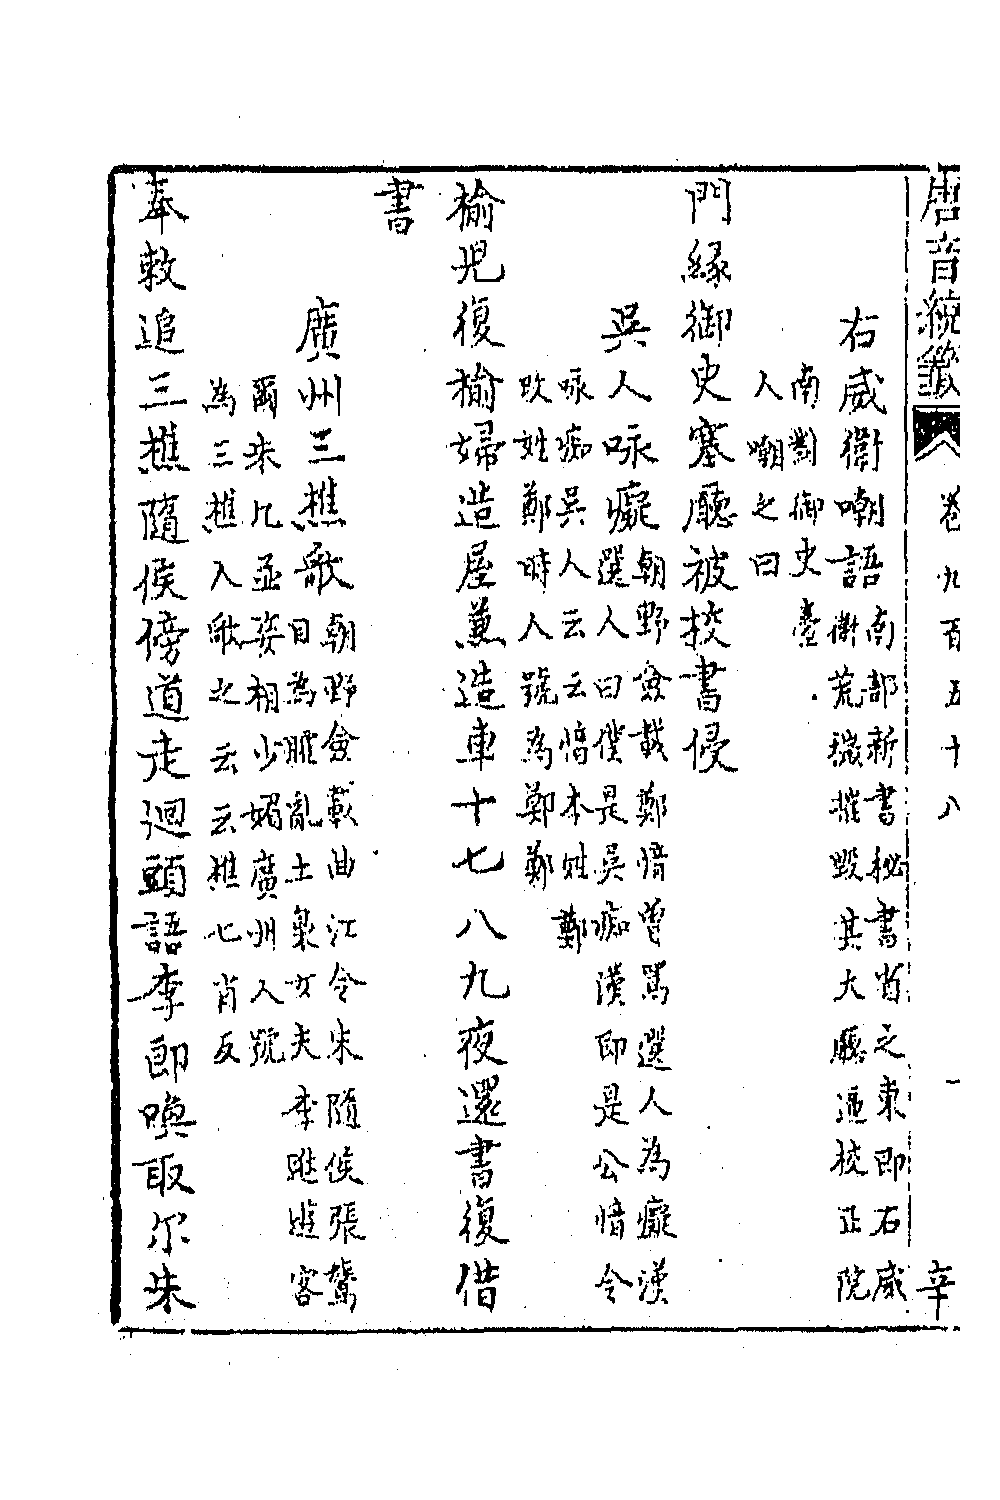 唐音統籤 卷九百五十八 一 辛
右威衛嘲語
南部新書秘書省之東即右威
衛荒穢摧毀其大廳逼校正院
南對御史臺
人嘲之曰
門緣御史塞廳被校書侵
吳人咏癡
朝野僉載鄭愔曾罵選人為癡漢
選人曰僕是吳痴漢即是公愔令
咏痴吳人云云愔本姓鄭
改姓鄭時人號為鄭鄭
榆兒復榆婦造屋兼造車十七八九夜還書復借
書
廣州三樵歌
朝野僉載曲江令朱隨侯張鷟
目為臛亂土梟女夫李逖遊客
爾朱九並姿相少媚廣州人號
為三樵人歌之云云樵七肖反
奉敕追三樵隨侯傍道走迴頭語李郎喚取尔朱